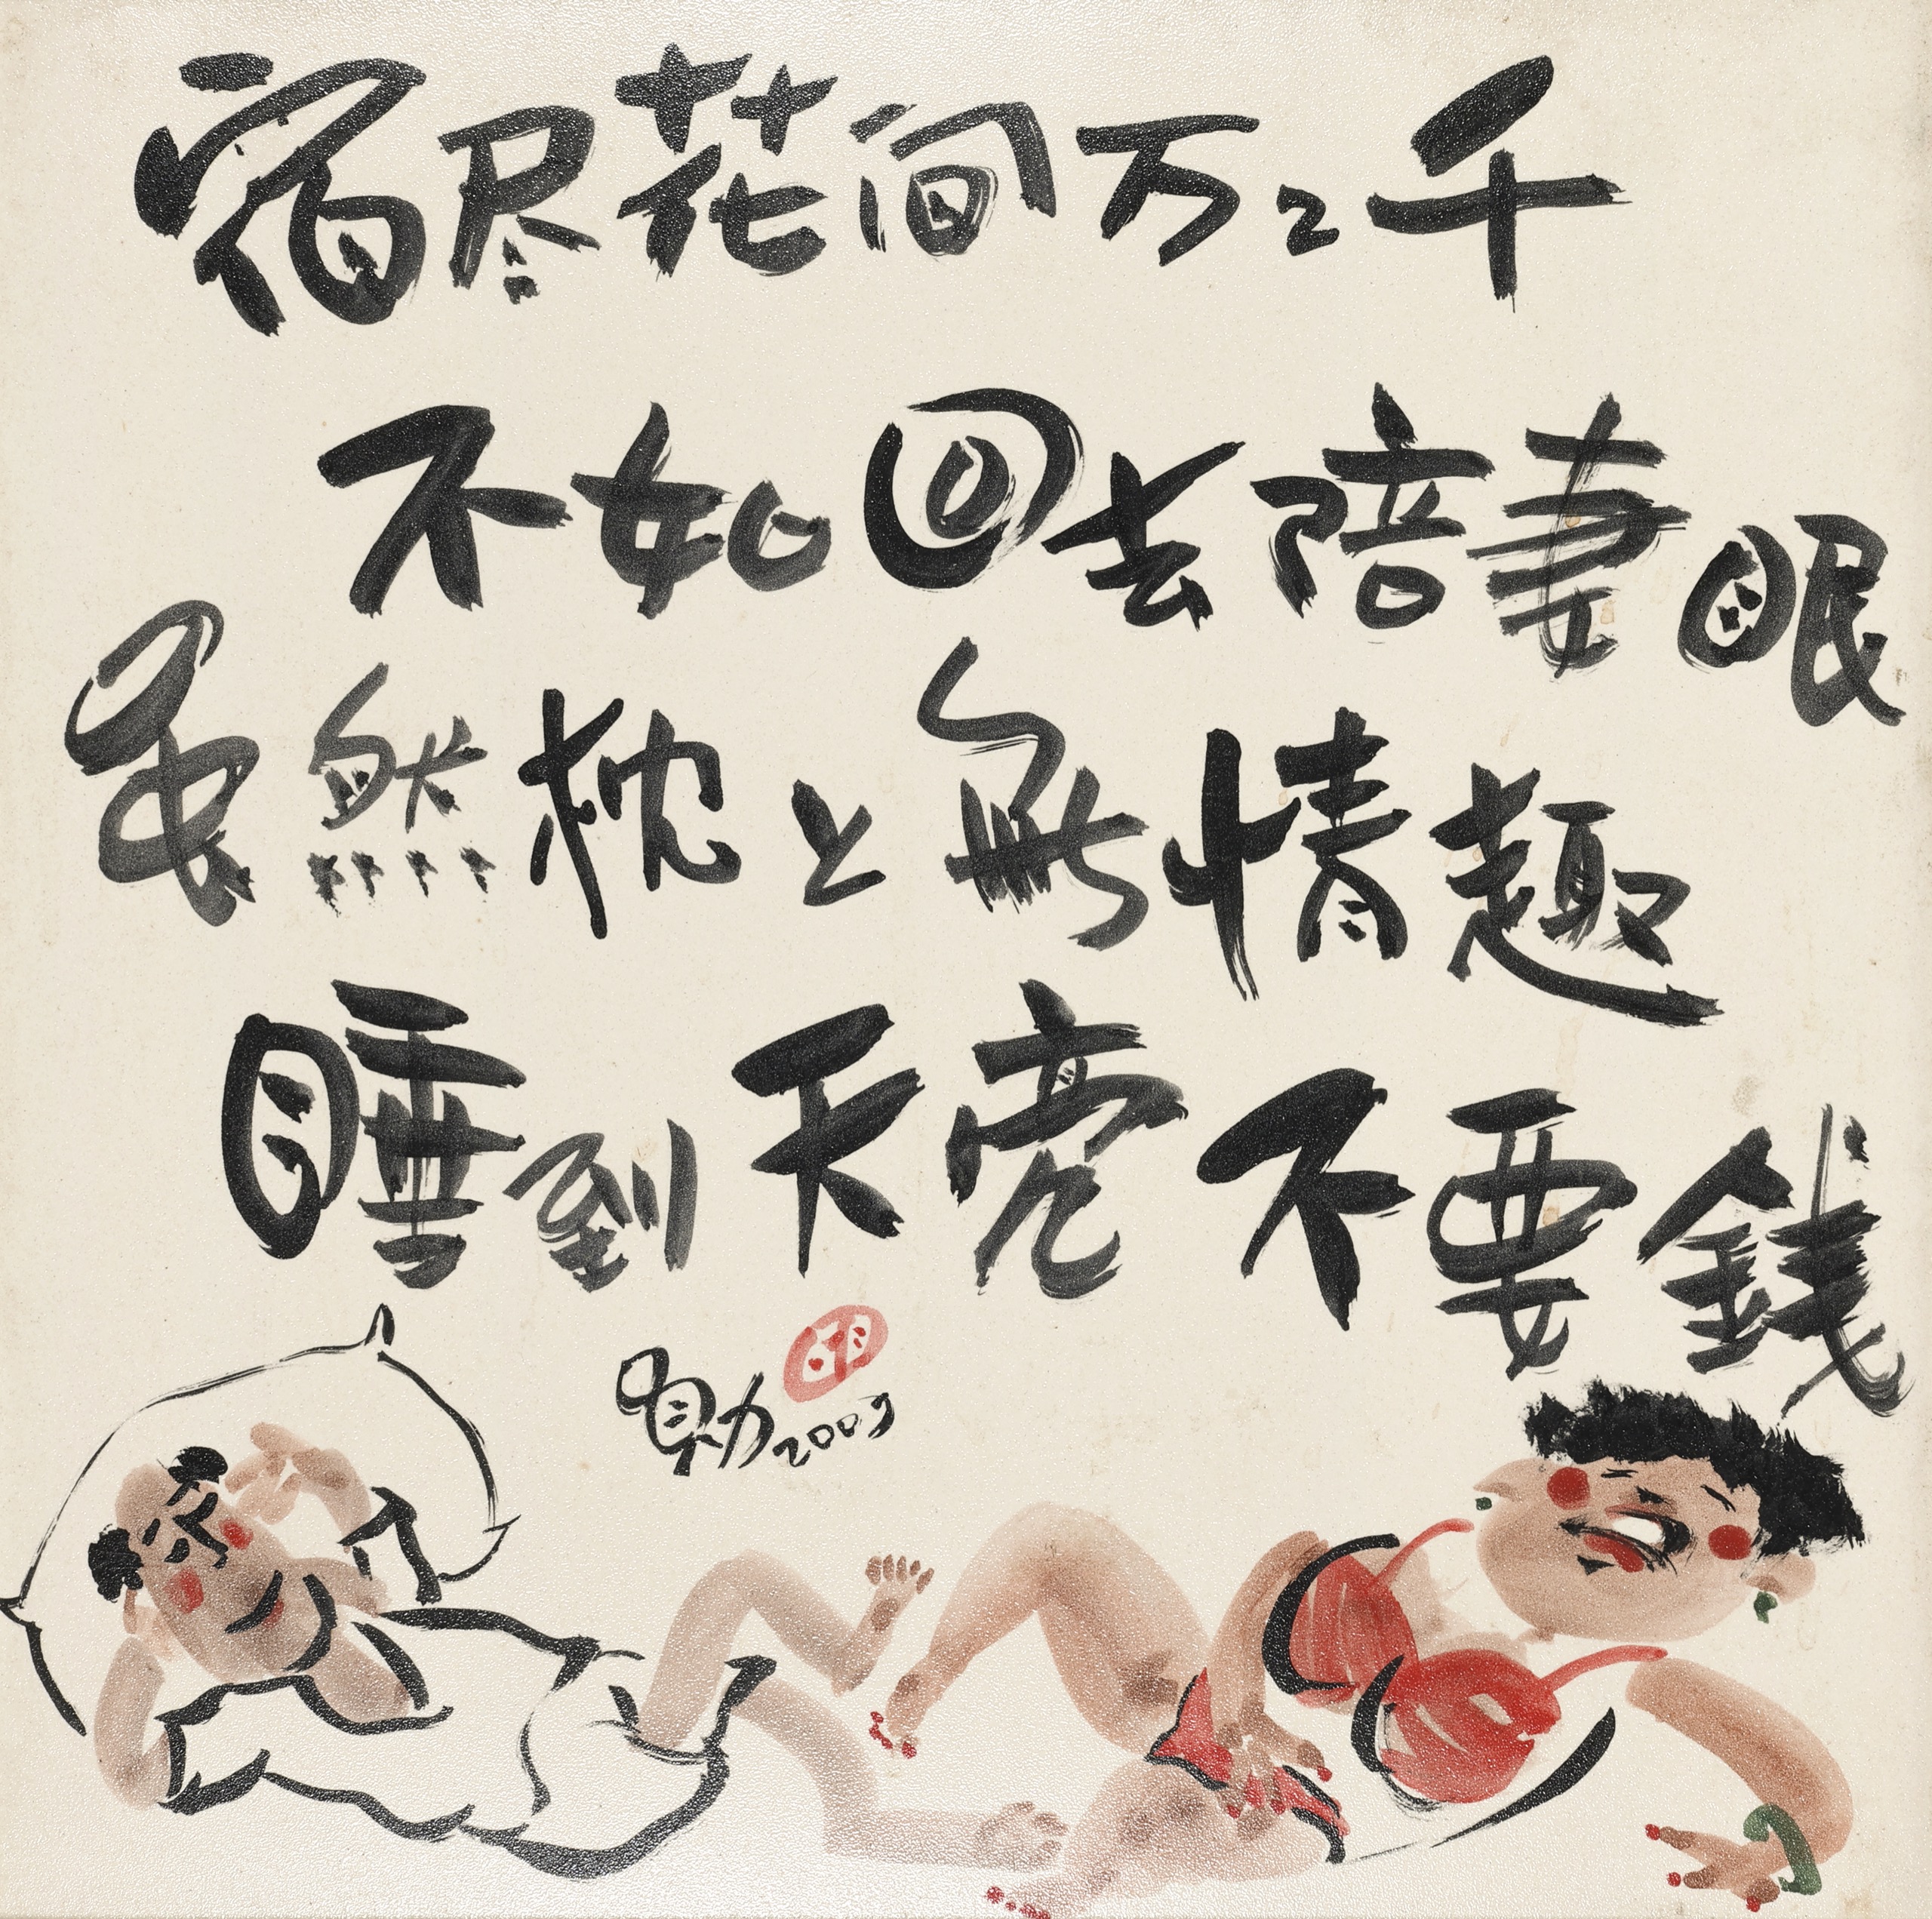 宿尽花间万二千
不如回去陪妻眠
虽然枕上無情趣
睡到天亮不要錢
勛2009